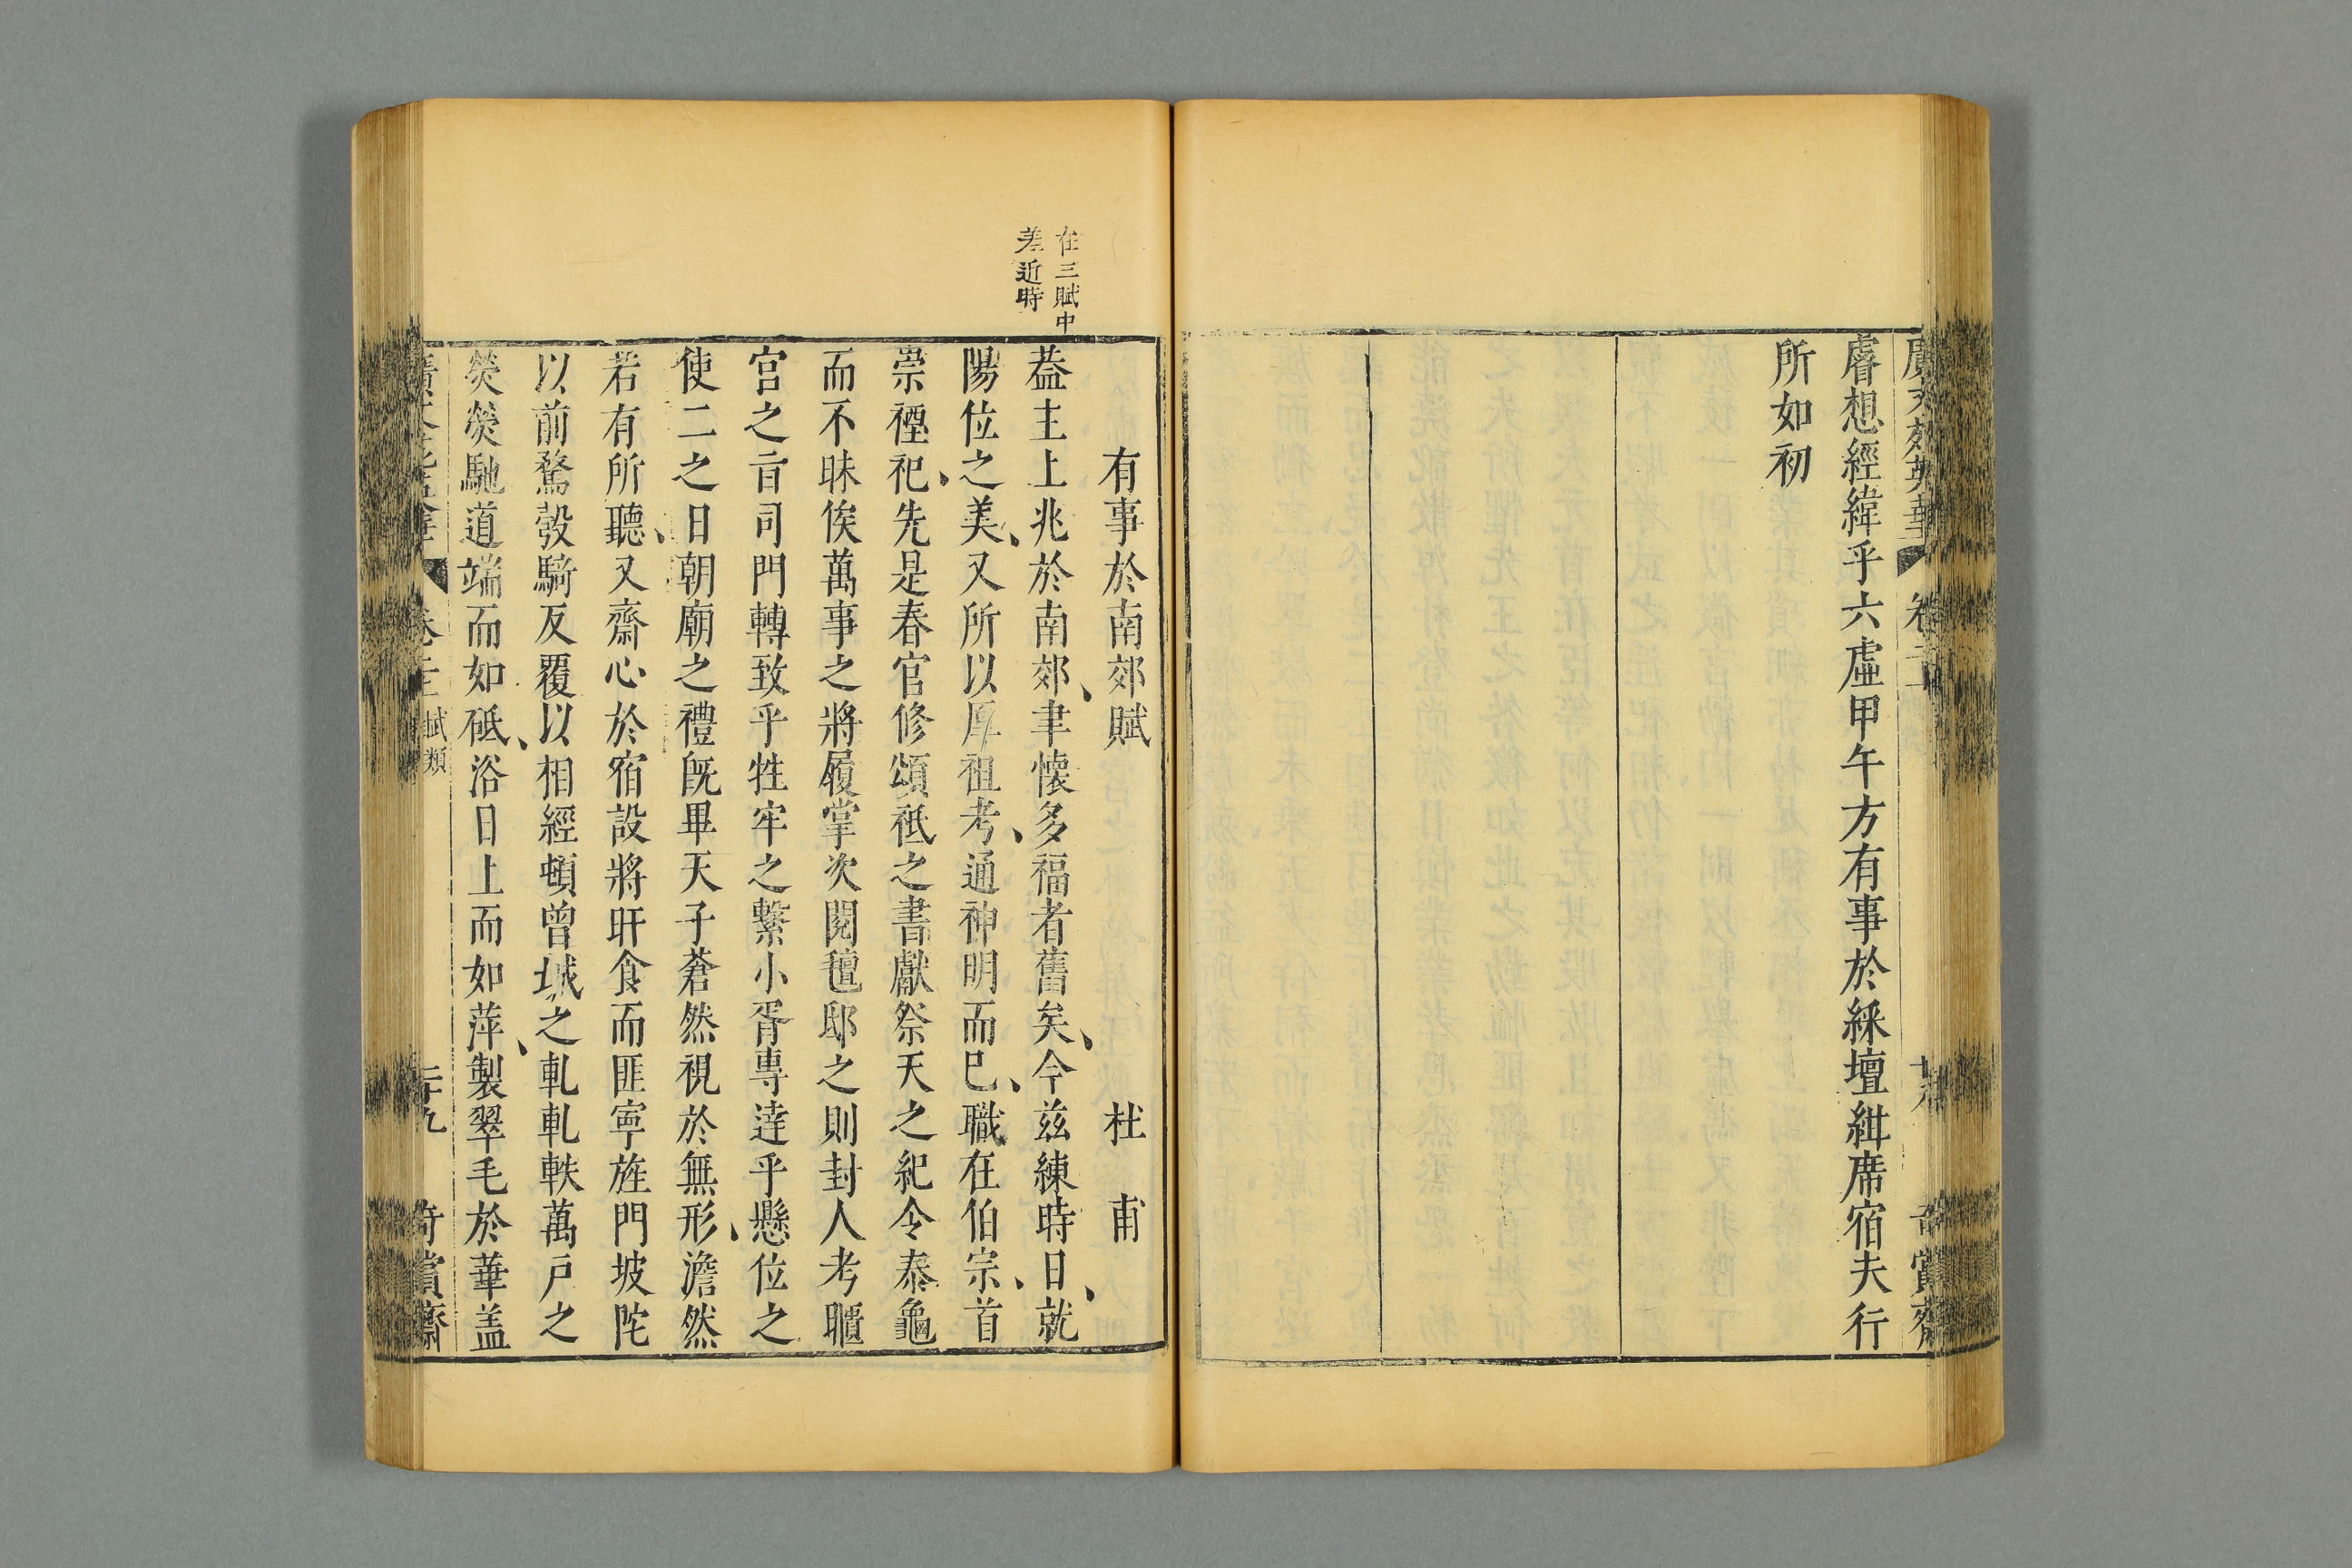 廣文苑英華 卷二十
睿想經緯乎六虛甲午方有事於綵壇紺席宿夫行
所如初
賞齋
在三賦中
差近時
有事於南郊賦 杜甫
葢主上兆於南郊聿懷多福者舊矣今茲練時日就
陽位之美又所以厚祖考通神明而已職在伯宗首
崇禋祀先是春官修頌祗之書獻祭天之紀令泰龜
而不昧俟萬事之將履掌次閱氊邸之則封人考壝
宮之旨司門轉致乎牲牢之繫小胥專達乎懸位之
使二之日朝廟之禮旣畢天子蒼然視於無形澹然
若有所聽又齋心於宿設將旰食而匪寧旌門坡陀
以前鶩彀騎反覆以相經頓曾城之軋軋軼萬戶之
熒熒馳道端而如砥浴日上而如萍製翠毛於華盖
賦類
二十九
奇賞齋